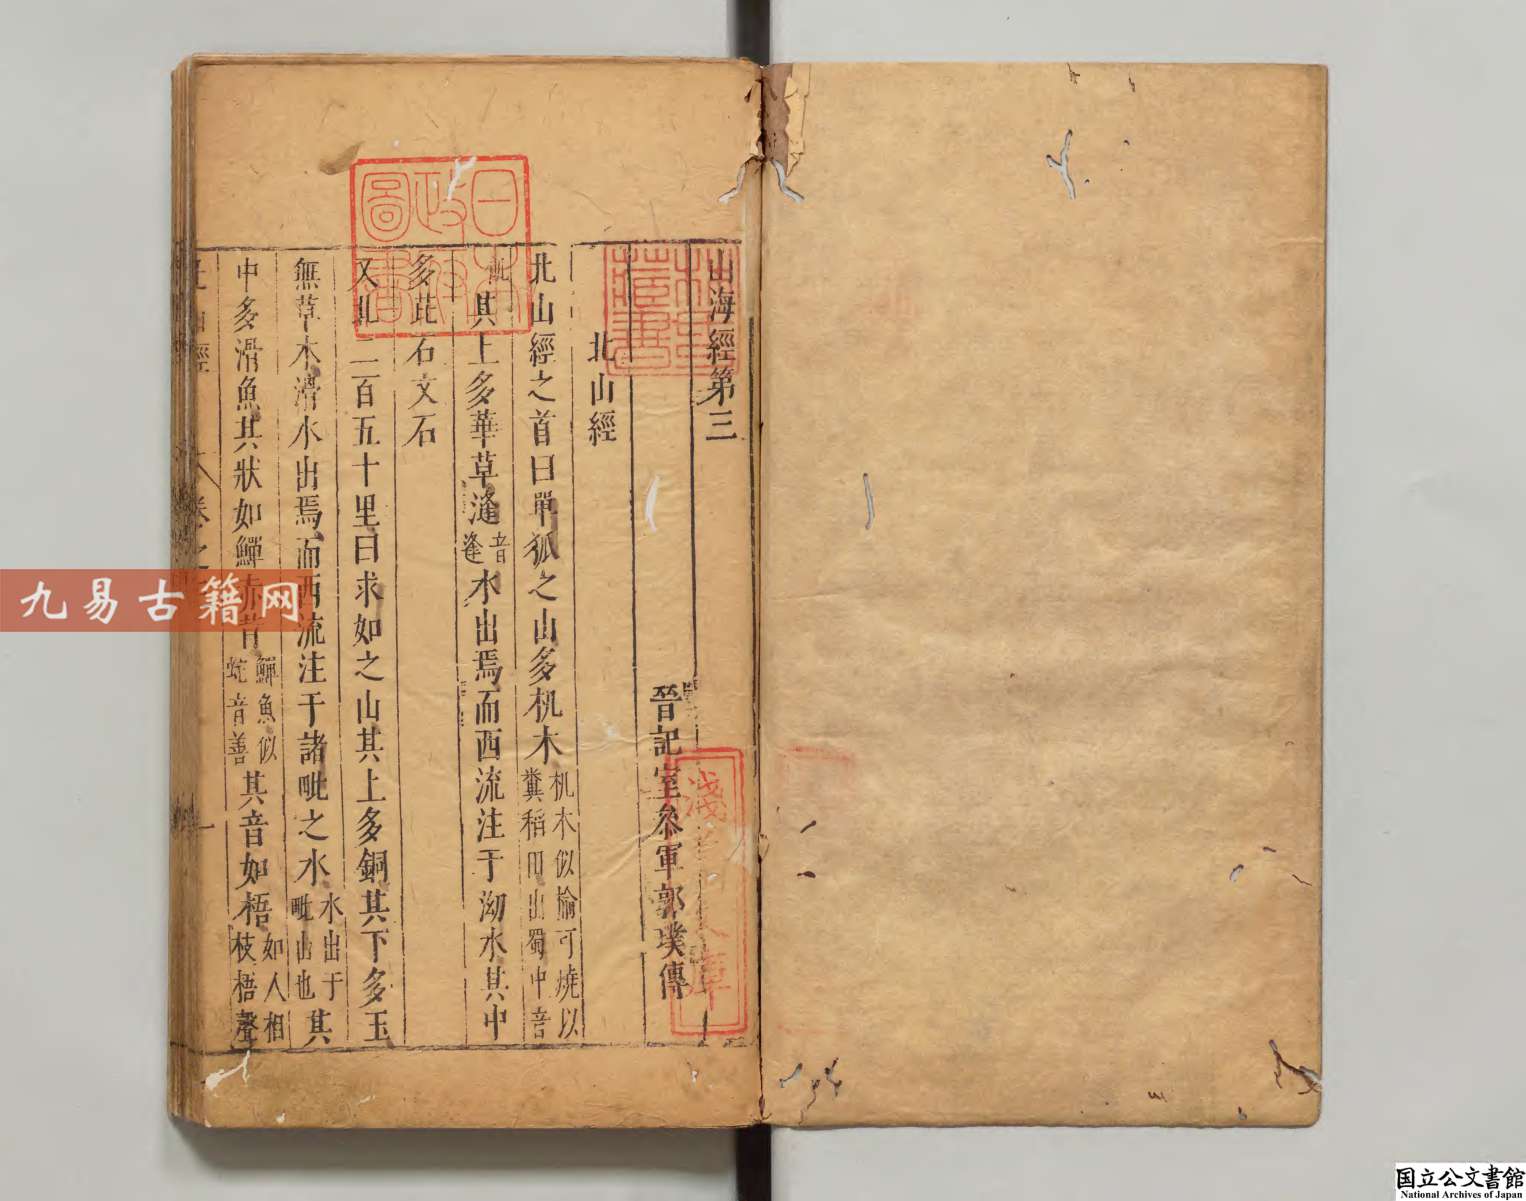 山海經第三
晉記室參軍郭璞傳
北山經
北山經之首曰單狐之山多机木机木似榆可燒以糞稻田出蜀中音
其上多華草漨音逢水出焉而西流注于泑水其中
多茈石文石
又北二百五十里曰求如之山其上多銅其下多玉
無草木滑水出焉而西流注于諸毗之水水出于毗山也其
中多滑魚其狀如鱓赤背鱓魚似蛇音善其音如梧如人相枝梧聲
淺草文庫
九易古籍网
国立公文書館
National Archives of Japan